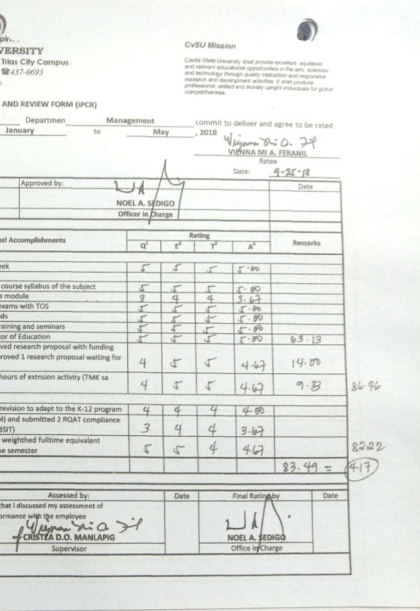 CvSU Mission
VERSITY
Trias City Campus
☎437-0693
Cavite State University shall provide excellent, equitable
and relevant educational opportunities in the arts, sciences
and technology through quality instruction and responsive
research and development activities. It shall produce
professional, skilled and morally upright individuals for global
competitiveness.
AND REVIEW FORM (IPCR)
Departmen Management commit to deliver and agree to be rated
January to May , 2018
VIENNA MI A. FERANIL
Ratee
Date: 4-25-18
Approved by: Date
NOEL A. SEDIGO
Officer in Charge
al Accomplishments Rating Remarks
Q¹ E² T³ A⁴
eek 5 5 5 5.00
course syllabus of the subject 5 5 5 5.00
module 3 4 4 3.67
exams with TOS 5 5 5 5.00
ds 5 5 5 5.00
raining and seminars 5 5 5 5.00
tor of Education 5 5 5 5.00 63.13
ved research proposal with funding
proved 1 research proposal waiting for 4 5 5 4.67 14.00
hours of extnsion activity (TMK sa 4 5 5 4.67 9.33 86.46
revision to adapt to the K-12 program 4 4 4 4.00
) and submitted 2 RQAT compliance
BSIT) 3 4 4 3.67
weighted fulltime equivalent
e semester 5 5 4 4.67 8222
83.49 = 4.17
Assessed by: Date Final Rating by Date
that I discussed my assessment of
ormance with the employee
CRISTZA D.O. MANLAPIG NOEL A. SEDIGO
Supervisor Office in Charge